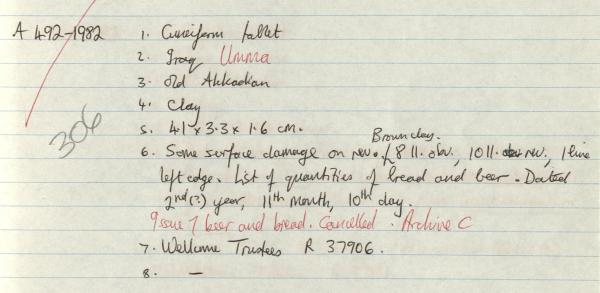 A 492-1982 1. Cuneiform tablet
2. Iraq Umma
3. Old Akkadian
4. Clay
306
5. 4.1 x 3.3 x 1.6 cm.
Brown clay.
6. Some surface damage on rev. 8 ll. obv., 10 ll. rev., 1 line
left edge. List of quantities of bread and beer. Dated
2nd(?) year, 11th month, 10th day.
Issue of beer and bread. Cancelled. Archive C
7. Wellcome Trustees R 37906.
8. —